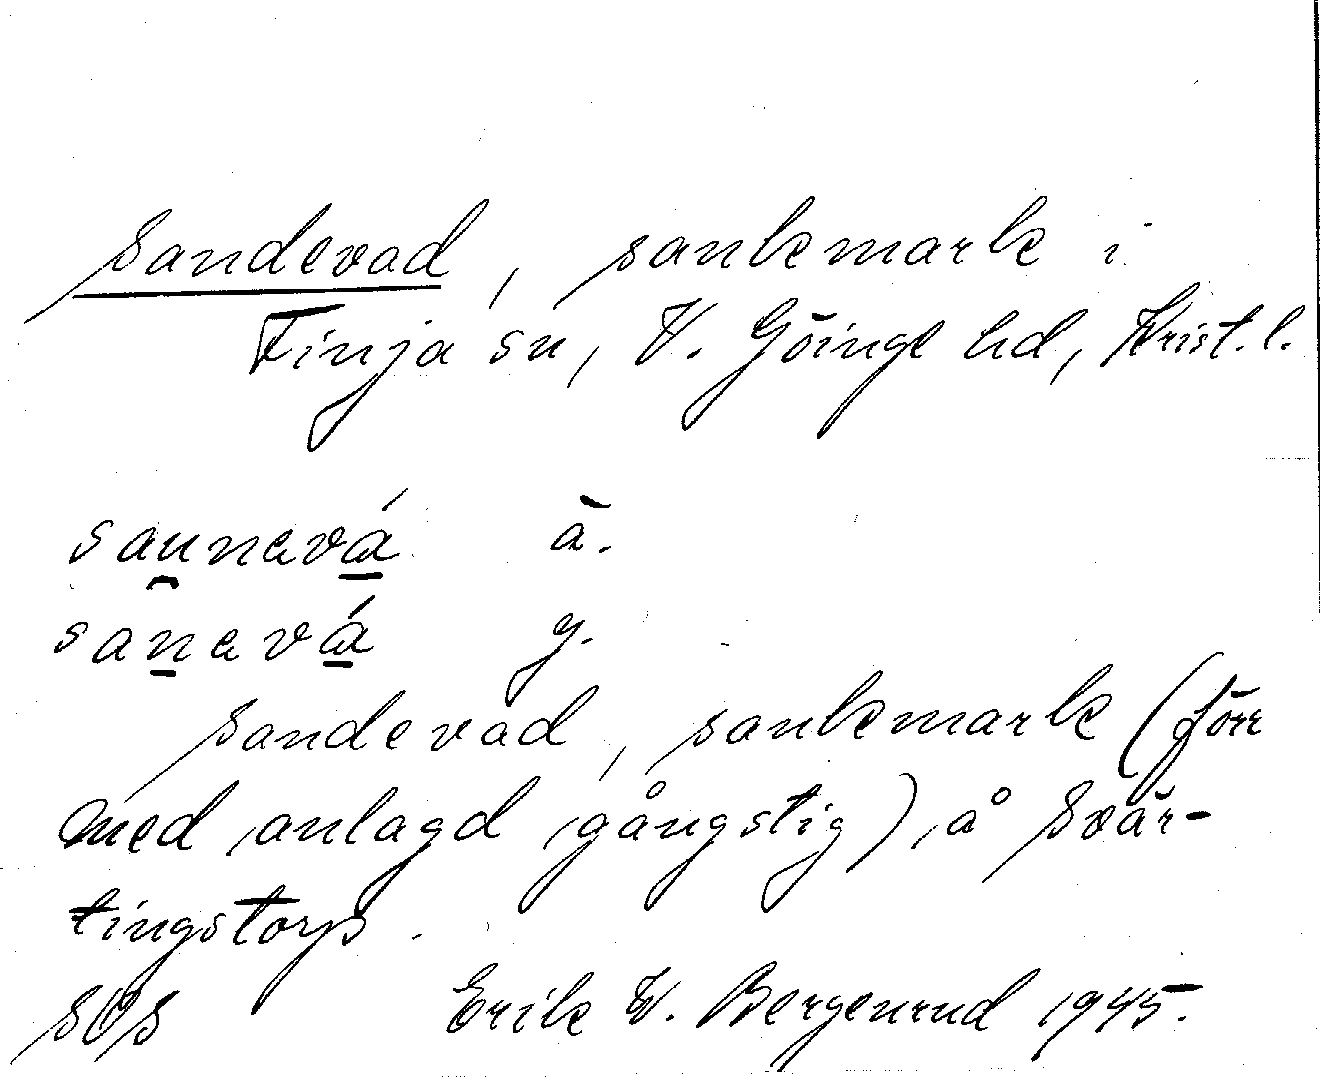 Sandevad, sankmark i
Finja sn, V. Göinge hd, Krist. l.
saunavá ä.
sanavá y.
Sandevad, sankmark (förr
med anlagd gångstig) å Svär-
tingstorp.
SOS Erik W. Bergenrud 1945.